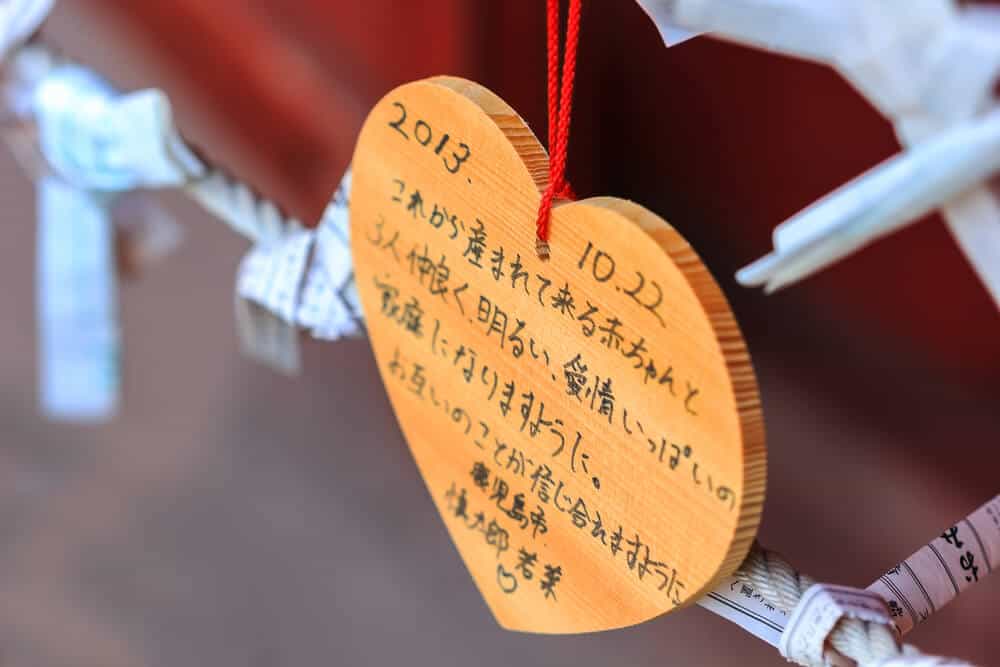 2013. 10.22
これから産まれて来る赤ちゃんと
3人仲良く、明るい、愛情いっぱいの
家庭になりますように。
お互いのことが信じ合えますように
鹿児島市
慎太郎 若菜
みか